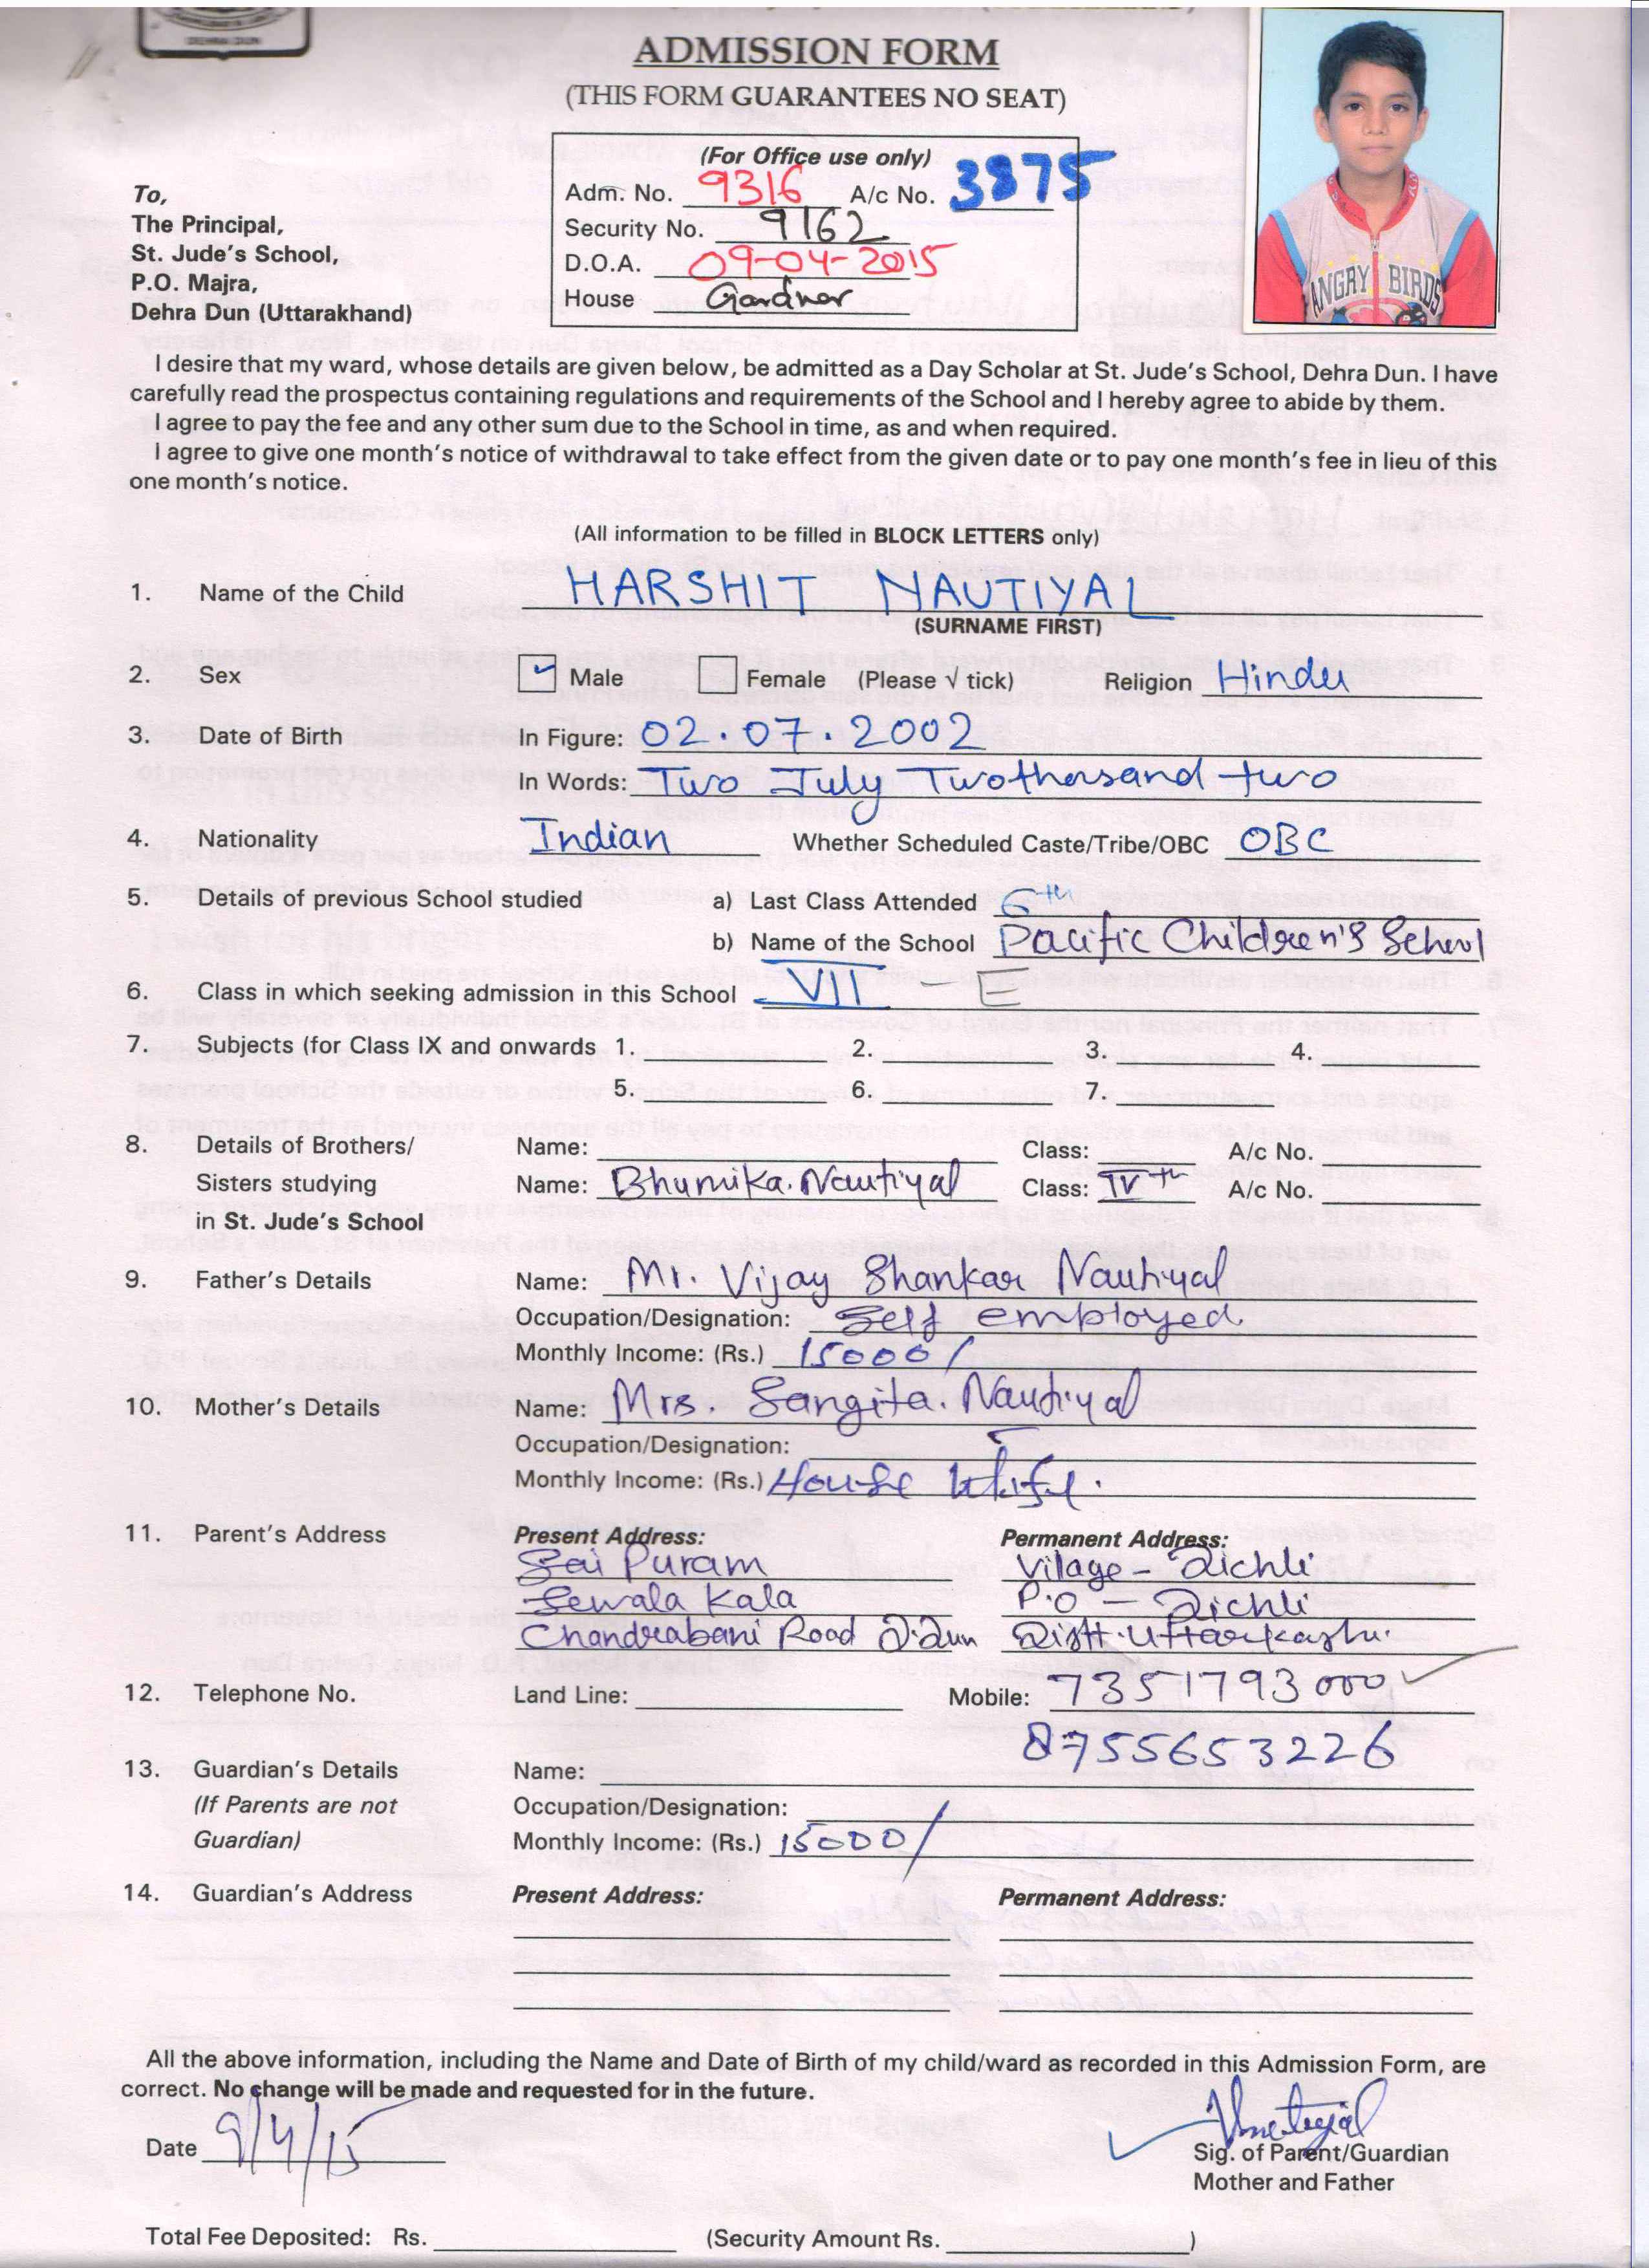 DEHRA DUN
ADMISSION FORM
(THIS FORM GUARANTEES NO SEAT)
(For Office use only)
Adm. No. 9316 A/c No. 3875
Security No. 9162
D.O.A. 09-04-2015
House Gardner
To,
The Principal,
St. Jude's School,
P.O. Majra,
Dehra Dun (Uttarakhand)
ANGRY BIRDS
I desire that my ward, whose details are given below, be admitted as a Day Scholar at St. Jude's School, Dehra Dun. I have
carefully read the prospectus containing regulations and requirements of the School and I hereby agree to abide by them.
I agree to pay the fee and any other sum due to the School in time, as and when required.
I agree to give one month's notice of withdrawal to take effect from the given date or to pay one month's fee in lieu of this
one month's notice.
(All information to be filled in BLOCK LETTERS only)
1. Name of the Child HARSHIT NAUTIYAL
(SURNAME FIRST)
2. Sex Male Female (Please √ tick) Religion Hindu
3. Date of Birth In Figure: 02.07.2002
In Words: Two July Twothousand two
4. Nationality Indian Whether Scheduled Caste/Tribe/OBC OBC
5. Details of previous School studied a) Last Class Attended 6th
b) Name of the School Pacific Children's School
6. Class in which seeking admission in this School VII - E
7. Subjects (for Class IX and onwards 1. 2. 3. 4.
5. 6. 7.
8. Details of Brothers/ Name: Class: A/c No.
Sisters studying Name: Bhumika. Nautiyal Class: IVth A/c No.
in St. Jude's School
9. Father's Details Name: Mr. Vijay Shankar Nautiyal
Occupation/Designation: Self employed
Monthly Income: (Rs.) 15000/
10. Mother's Details Name: Mrs. Sangita. Nautiyal
Occupation/Designation:
Monthly Income: (Rs.) House Wife.
11. Parent's Address Present Address: Permanent Address:
Sai Puram Vilage - Dichli
Sewala Kala P.O - Dichli
Chandrabani Road D.Dun Distt. Uttarkashi.
12. Telephone No. Land Line: Mobile: 7351793000
8755653226
13. Guardian's Details Name:
(If Parents are not Occupation/Designation:
Guardian) Monthly Income: (Rs.) 15000/
14. Guardian's Address Present Address: Permanent Address:
All the above information, including the Name and Date of Birth of my child/ward as recorded in this Admission Form, are
correct. No change will be made and requested for in the future.
Date 9/4/15
Sig. of Parent/Guardian
Mother and Father
Total Fee Deposited: Rs. (Security Amount Rs. )